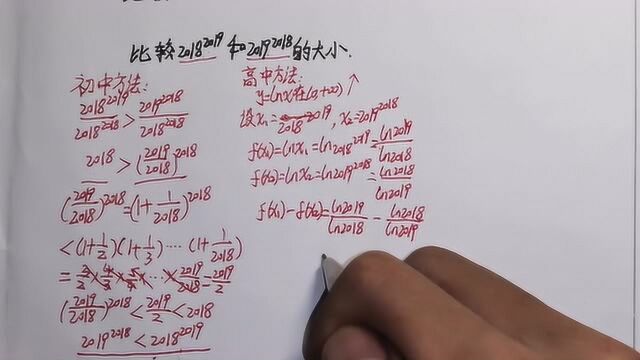 比较2018^2019和2019^2018的大小.
初中方法:
2018^2019/2018^2018 > 2019^2018/2018^2018
2018 > (2019/2018)^2018
(2019/2018)^2018 = (1+1/2018)^2018
<(1+1/2)(1+1/3)····(1+1/2018)
= 3/2×4/3×5/4×···×2019/2018=2019/2
(2019/2018)^2018 < 2019/2 < 2018
2019^2018 < 2018^2019
高中方法:
y=lnx在(0,+∞)↑
设x₁=2018^2019, x₂=2019^2018
f(x₁)=lnx₁=ln2018^2019=ln2019/ln2018
f(x₂)=lnx₂=ln2019^2018=ln2018/ln2019
f(x₁)-f(x₂)=ln2019/ln2018-ln2018/ln2019